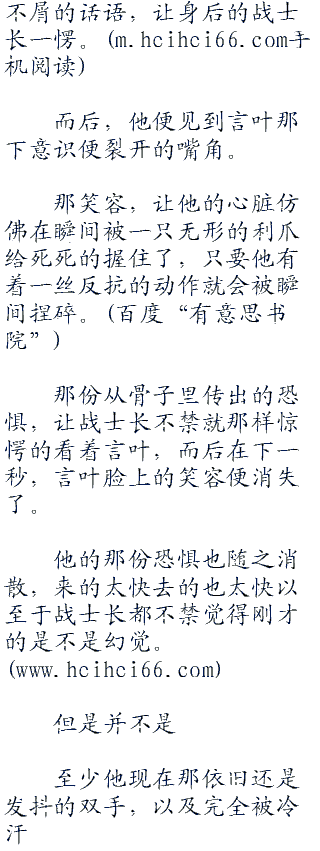 不屑的话语，让身后的战士
长一愣。(m.hcihci66.com手
机阅读)
而后，他便见到言叶那
下意识便裂开的嘴角。
那笑容，让他的心脏仿
佛在瞬间被一只无形的利爪
给死死的握住了，只要他有
着一丝反抗的动作就会被瞬
间捏碎。(百度“有意思书
院”)
那份从骨子里传出的恐
惧，让战士长不禁就那样惊
愕的看着言叶，而后在下一
秒，言叶脸上的笑容便消失
了。
他的那份恐惧也随之消
散，来的太快去的也太快以
至于战士长都不禁觉得刚才
的是不是幻觉。
(www.hcihci66.com)
但是并不是
至少他现在那依旧还是
发抖的双手，以及完全被冷
汗